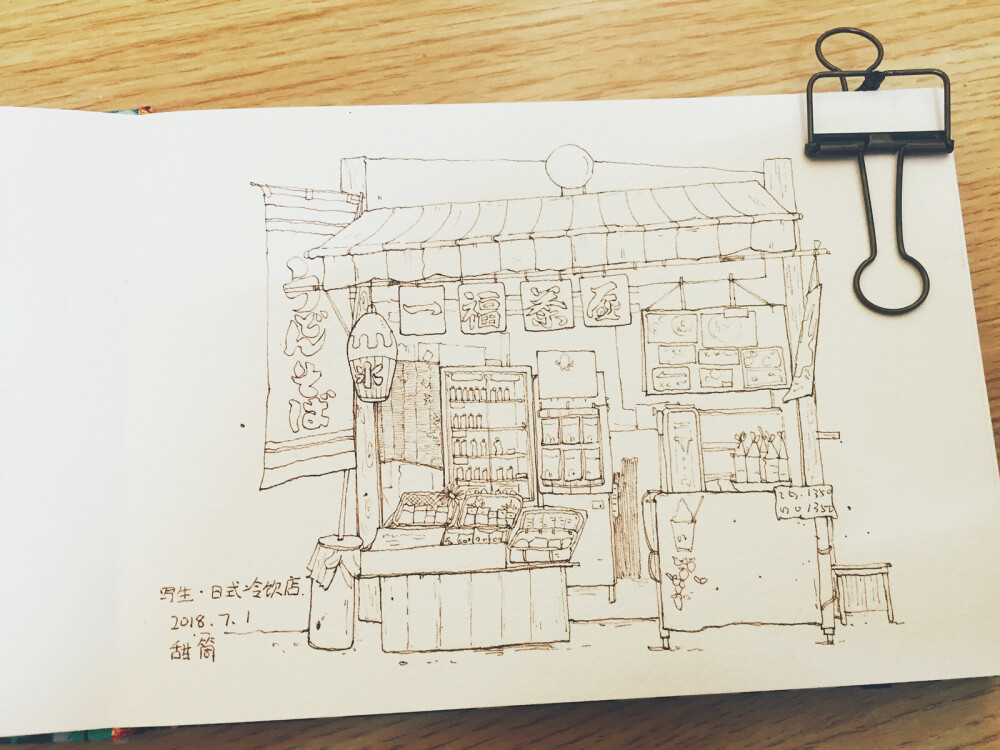 うどんそば
氷
一福茶屋
写生·日式冷饮店.
2018.7.1
甜筒